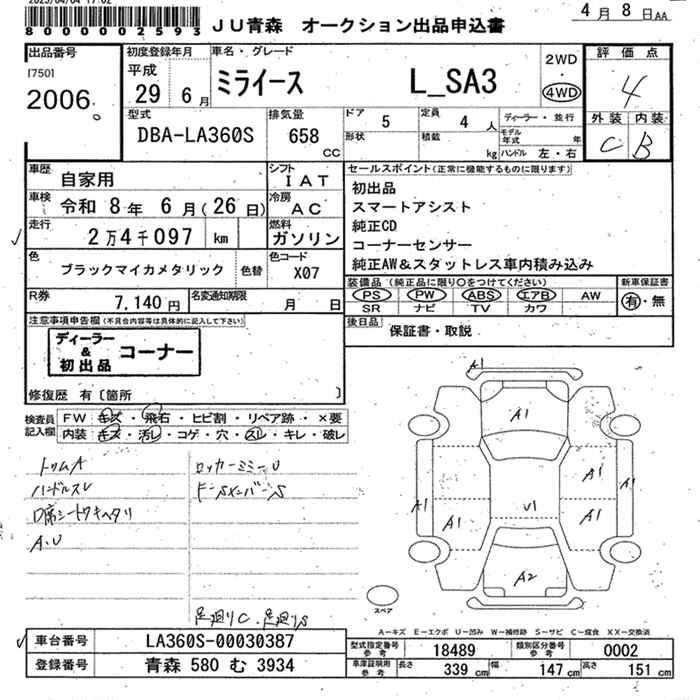 80000002593
JU青森 オークション出品申込書
4月8日AA
出品番号
[750]
2006
初度登録年月
平成
29 6月
車名・グレード
ミライース L_SA3
2WD
・
4WD
評価点
4
外装 内装
C B
型式
DBA-LA360S
排気量
658
CC
ドア
5
定員
4 人
形状
積載
kg
ディーラー・並行
モデル年式 年
ハンドル 左・右
車歴
自家用
シフト
IAT
車検
令和 8年 6月(26日)
冷房
AC
走行
2万4千097 km
燃料
ガソリン
色
ブラックマイカメタリック
色替
色コード
X07
R券
7,140円
名変通知期限
月 日
セールスポイント(正常に機能するものに限ります)
初出品
スマートアシスト
純正CD
コーナーセンサー
純正AW&スタットレス車内積み込み
装備品(純正品に限り○をつけてください)
PS PW ABS エアB AW
SR ナビ TV カワ
新車保証書
有・無
後日品
保証書・取説
注意事項申告欄(不具合内容等は具体的に記入して下さい)
ディーラー
&
初出品
コーナー
修復歴 有〔箇所 〕
検査員
記入欄
FW キズ・飛石・ヒビ割・リペア跡・×要
内装 キズ・汚レ・コゲ・穴・スレ・キレ・破レ
トリムA
ハンドルスレ
D席シート
A.U
足廻りC、足廻りS
A1
A1
A1
A1
A1
A1
A1
U1
A2
スペア
A-キズ E-エクボ U-凹み W-補修跡 S-サビ C-腐食 XX-交換済
車台番号
LA360S-00030387
登録番号
青森 580 む 3934
型式指定番号
参考
18489
類別区分番号
参考
0002
車庫証明用
参考
長さ
339 cm
幅
147 cm
高さ
151 cm